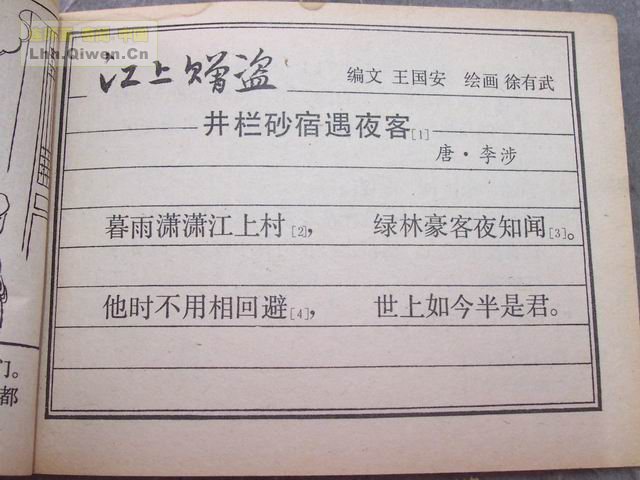 Lhh.Qiwen.Cn
江上赠盗
编文 王国安 绘画 徐有武
井栏砂宿遇夜客[1]
唐·李涉
暮雨潇潇江上村[2]， 绿林豪客夜知闻[3]。
他时不用相回避[4]， 世上如今半是君。
门。
都